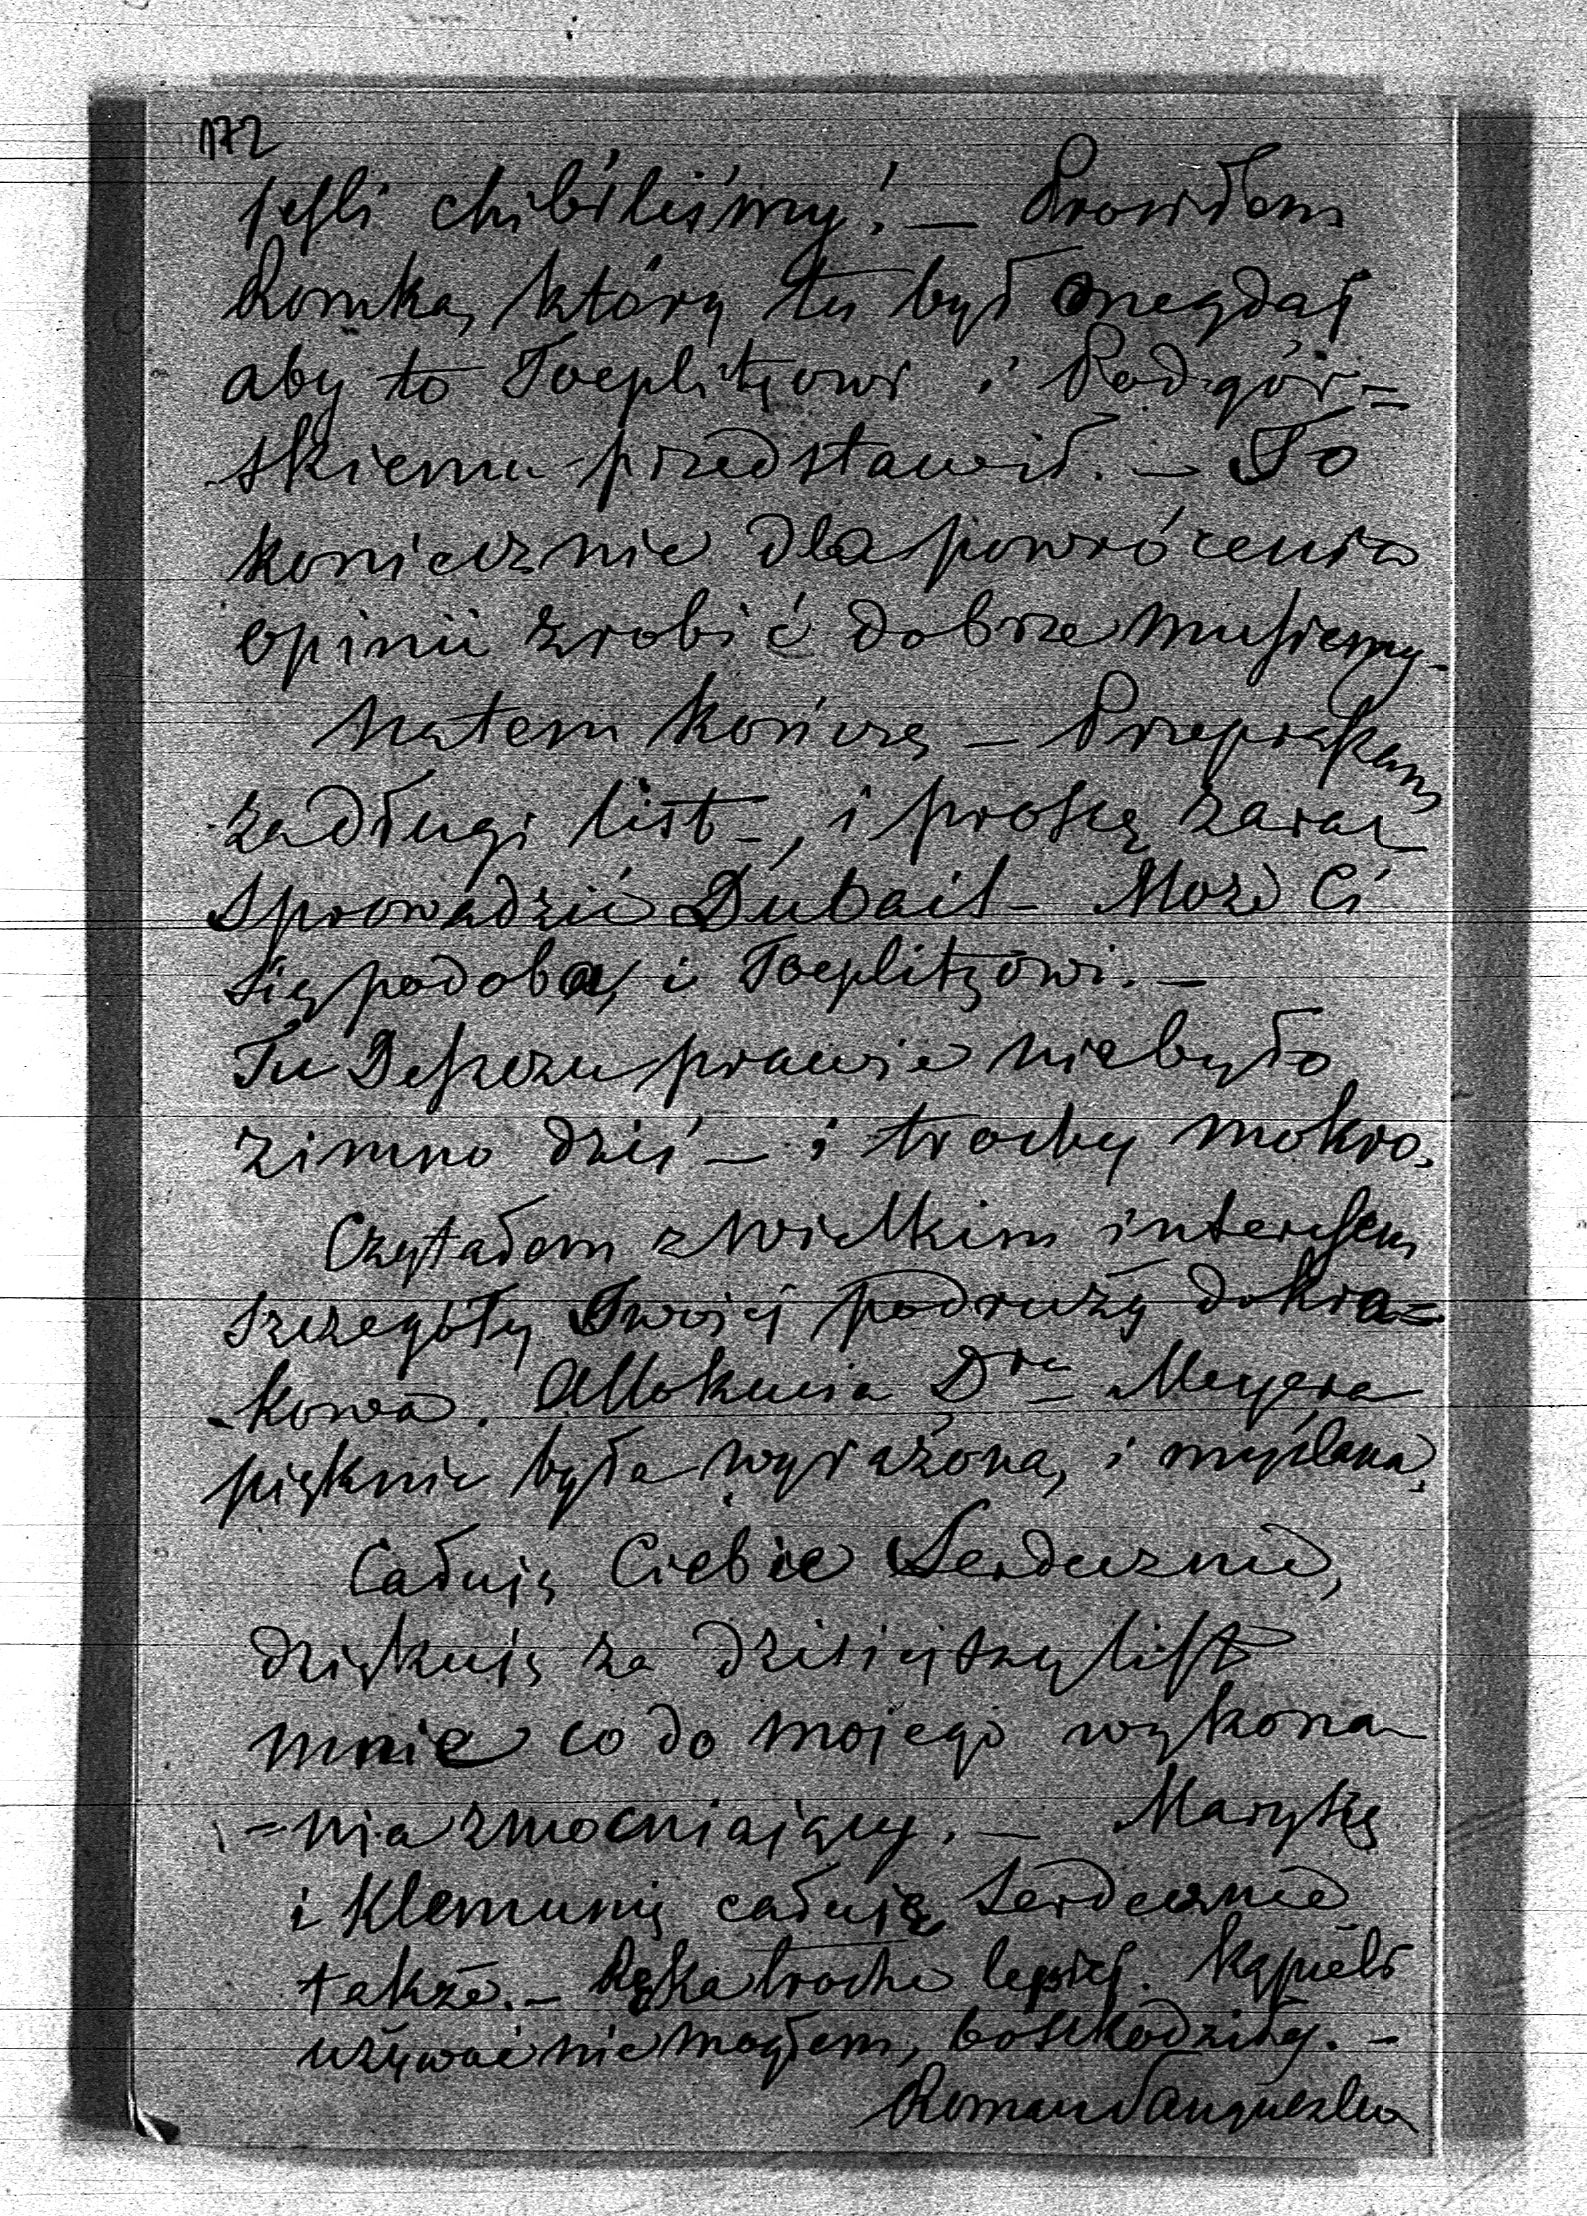 172
jesli chibiliśmy! — Prosiłem
Romka, który tu był onegdaj
aby to Toeplitzowi i Podgór=
skiemu przedstawił. — To
koniecznie dla powrócenia
opinii zrobić dobrze musiemy.
Natem kończę — Przepraszam
za długi list —, i proszę zaraz
sprowadzić Dubail — Może Ci
się podoba, i Toeplitzowi. —
Tu Deszczu prawie niebyło
zimno dziś — i trochę mokro.
Czytałem z wielkim interesem
szczegóły Twojej podruży do Kra=
-kowa. Allokucia Dra Meyera
pięknie była wyrażona, i myślana,
Całuję Ciebie Serdecznie,
dziękuję za dzisiejszy list
mnie co do mojego wykona
=nia zmocniający. — Marysię
i Klemunię całuję Serdecznie
także. — Ręka troche lepiej. Kąpieli
używać nie mogłem, bo szkodziły. —
Roman Sanguszko